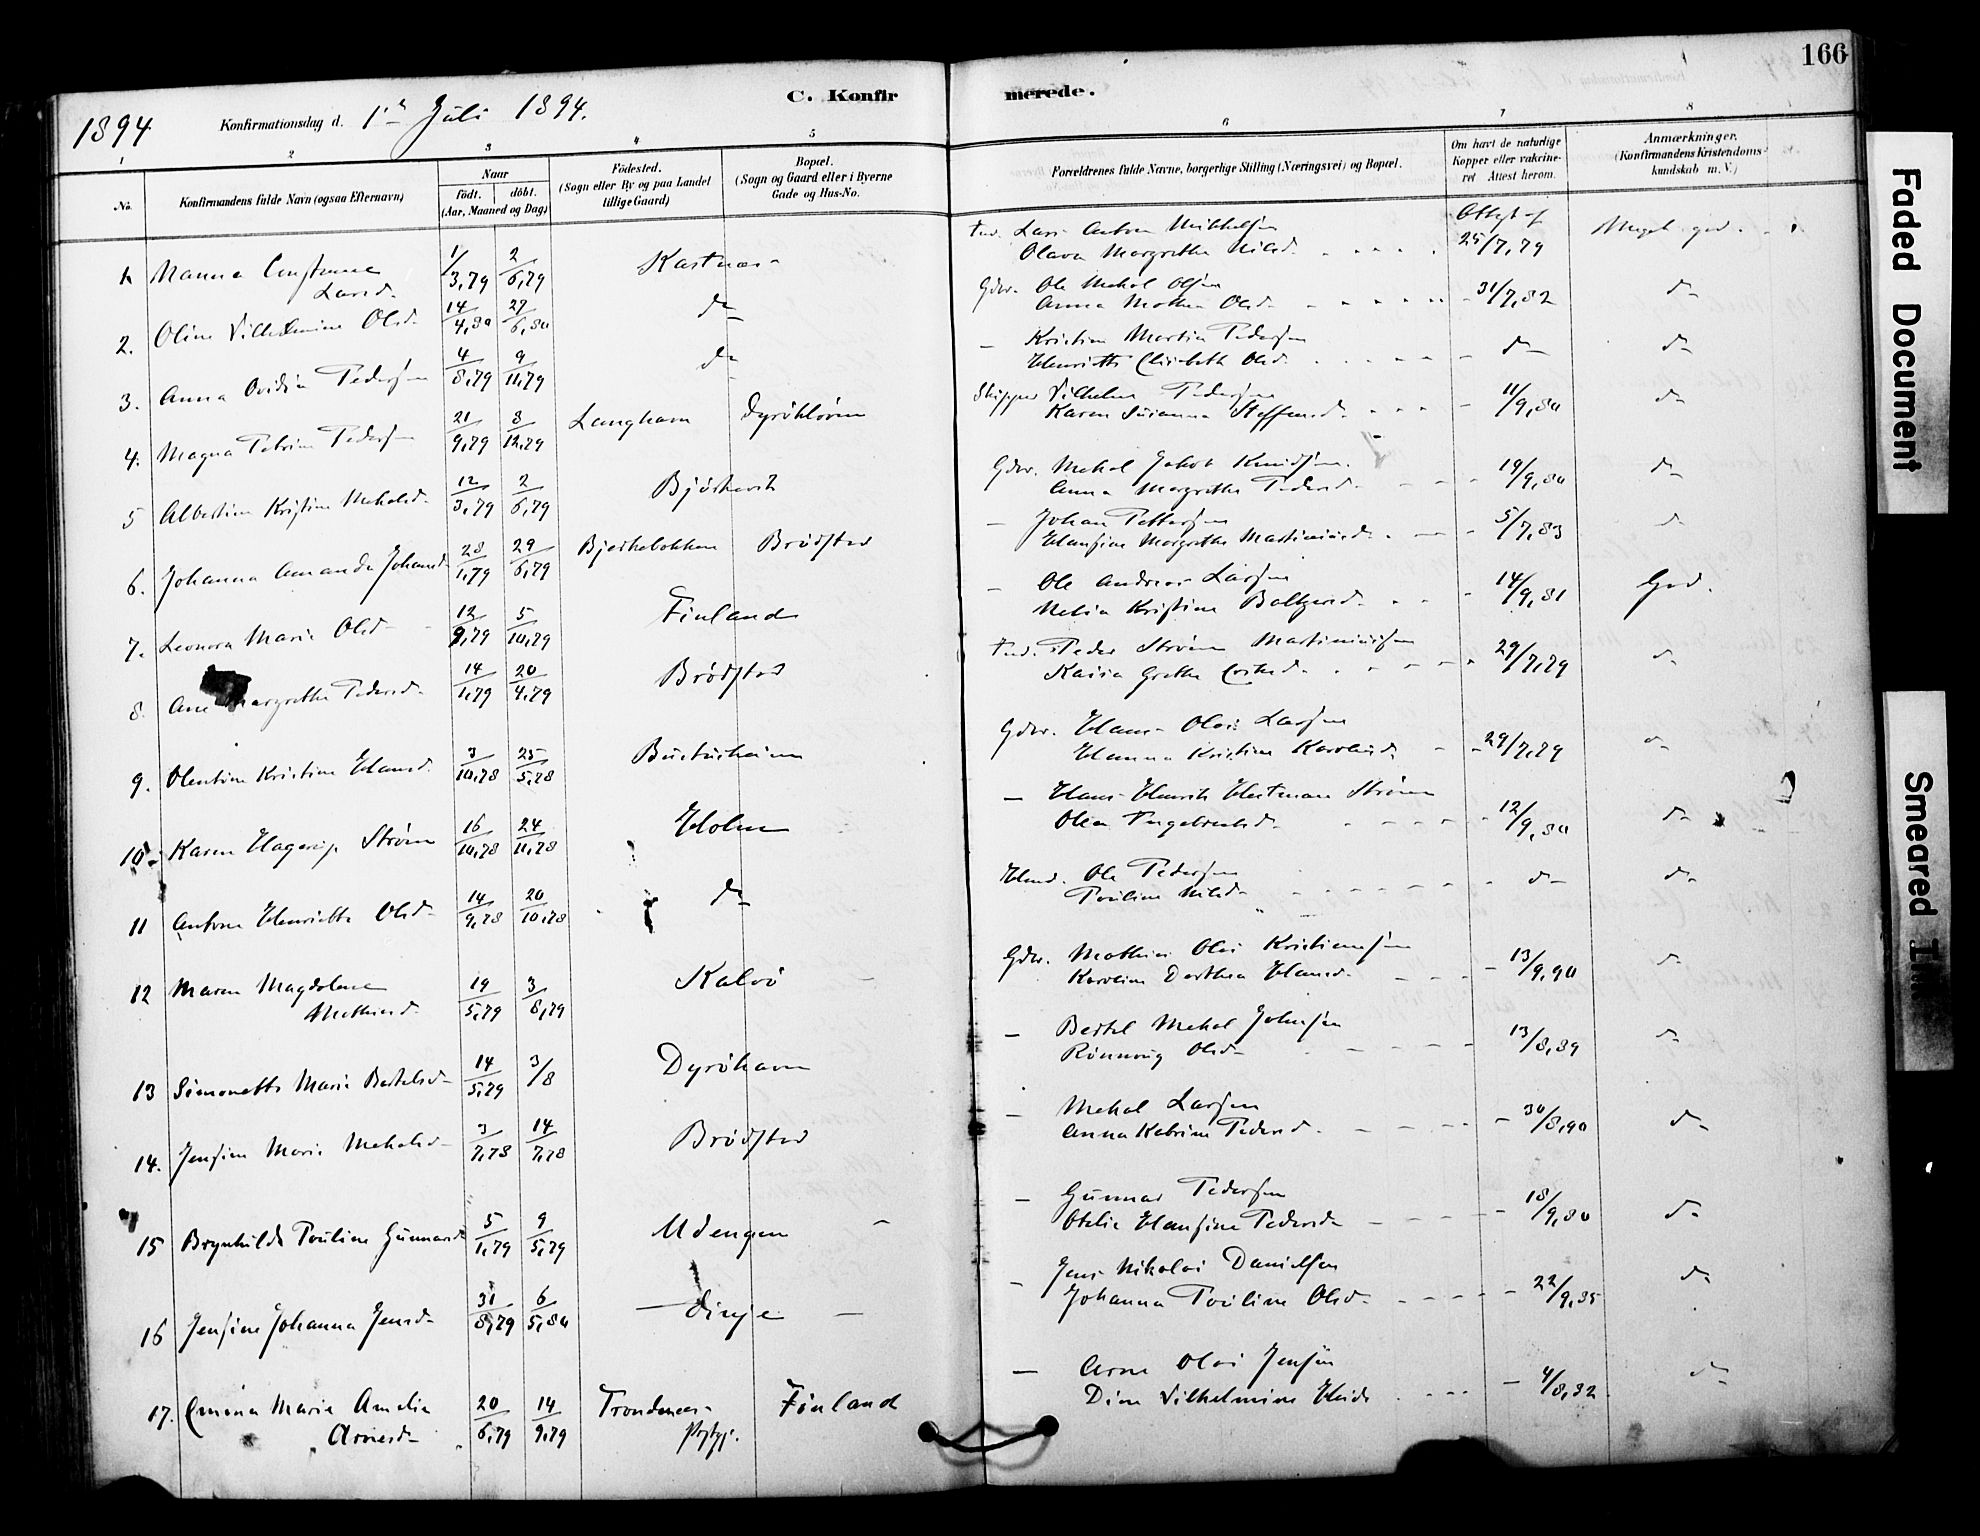 166
1894
Konfirmationsdag d. 1ste Juli 1894.
C. Konfirmerede.
1 2 3 4 5 6 7 8
No.
Konfirmandens fulde Navn (ogsaa Efternavn)
Naar
født. døbt.
(Aar, Maaned og Dag)
Fødested.
(Sogn eller By og paa Landet
tillige Gaard)
Bopæl.
(Sogn og Gaard eller i Byerne
Gade og Hus-No.
Forældrenes fulde Navne, borgerlige Stilling (Næringsvei) og Bopæl.
Om havt de naturlige
Kopper eller vakcine-
ret Attest herom.
Anmærkninger.
(Konfirmandens Kristendoms-
kundskab m. V.)
1. Nanna Constance 1/3,79 2/6,79 Kastnes Ind. Lars Anton Mikkelsen Attest af
Larsd. Olava Margrethe Nilsd. 25/7,79 Meget god.
2. Oline Vilhelmine Olsd. 14/4,80 27/6,80 do Gdbr. Ole Mekal Olsen
Anna Mathea Olsd. 31/7,82 do
3. Anna Ovidia Pedersen 4/8,79 9/11,79 do – Kristian Martin Pedersen
Henriette Elisabeth Olsd. do do
4. Magna Petrine Pedersen 21/9,79 8/12,79 Langhavn Dyröklöven Skipper Vilhelm Pedersen
Karen Susanna Steffensd. 11/9,80 do
5 Albertine Kristine Mekalsd. 12/3,79 2/6,79 Bjørkevik Gdbr. Mekal Jakob Knudsen.
Anna Margrethe Pedersd. 19/9,80 do
6. Johanna Amanda Johansd. 28/1,79 29/6,79 Bjerkebakken Brödstad – Johan Pettersen
Hansine Margrethe Martinusd. 5/7,83 do
7. Leonora Marie Olsd. 12/9,79 5/10,79 Finland – Ole Andreas Larsen
Kristine 14/9,81 God.
8. Ane Margrethe Pedersd. 14/1,79 20/4,79 Brödstad Ind. Peder Strøm Martinussen
Kaisa Grethe 29/7,79 do
9. Olentine Kristine Hansd. 3/10,78 25/5,78 Gdbr. Hans Olai Larsen
Hanna Kristine 29/7,79 do
10. Karen Hagerup Strøm 16/10,78 24/11,78 Holm – Hans Henrik Hartman Strøm
Olea Ingebrigtsd. 12/9,80 do
11 Antona Henriette Olsd. 14/9,78 20/10,78 do Ole Pedersen
Pauline Nilsd. do do
12 Maren Magdalena 19/5,79 3/8,79 Kalvö Gdbr. Mathias Olai Kristiansen
Mathiasd. Karoline Dorthea Hansd. 13/9,90 do
13 Simonette Marie Bertelsd. 14/5,79 3/8 Dyröhavn – Bertel Mekal Johnsen
Rönnaug Olsd. 13/8,89 do
14. Jensine Marie Mekalsd. 3/7,78 14/7,78 Brödstad – Mekal Larsen
Anna Katrine Pedersd. 30/8,90 do
15 Brynhilde Pauline Gunnarsd. 5/1,79 9/5,79 Udengen – Gunnar Pedersen
Otelie Hansine Pedersd. 18/9,80 do
16 Jensine Johanna Jensd. 31/8,79 6/5,80 – – Jens Nikolai Danielsen
Johanna Pauline Olsd. 22/9,85 do
17. Emma Marie Amelia 20/6,79 14/9,79 Trondenes Finland – Arne Olai Jensen
Arnesd. Prstgj. Dina Vilhelmine 4/8,82 do
Faded Document
Smeared Ink